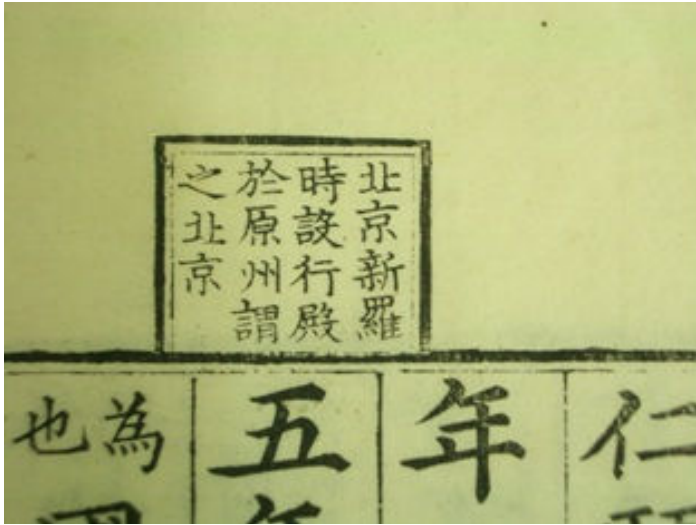 北京新羅
時設行殿
於原州謂
之北京
仁
年
五
為
也